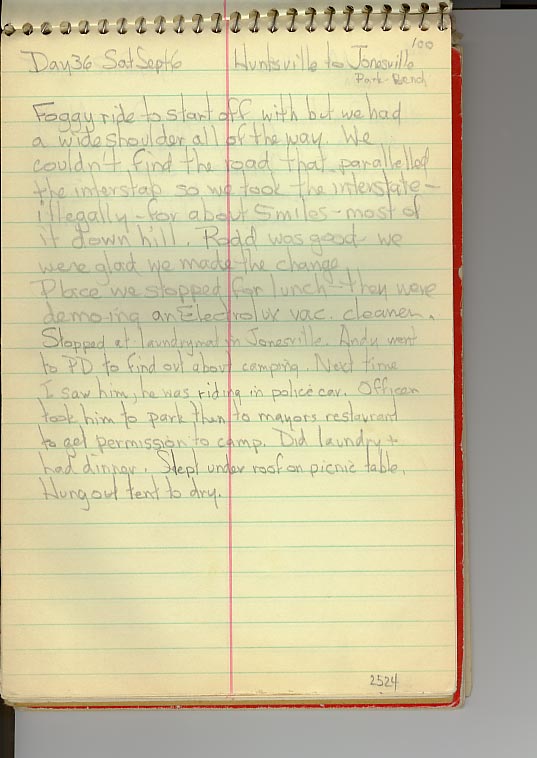 100
Day 36 Sat Sept 6 Huntsville to Jonesville
Park-Bench
Foggy ride to start off with but we had
a wide shoulder all of the way. We
couldn't find the road that parallelled
the interstap so we took the interstate -
illegally - for about 5 miles - most of
it down hill. Rodd was good - we
were glad we made the change
Place we stopped for lunch - they were
demoing an Electrolux vac. cleaner.
Stopped at laundrymat in Jonesville. Andy went
to PD to find out about camping. Next time
I saw him, he was riding in police car. Officer
took him to park, then to mayors restaurant
to get permission to camp. Did laundry +
had dinner. Slept under roof on picnic table.
Hung out tent to dry.
2524